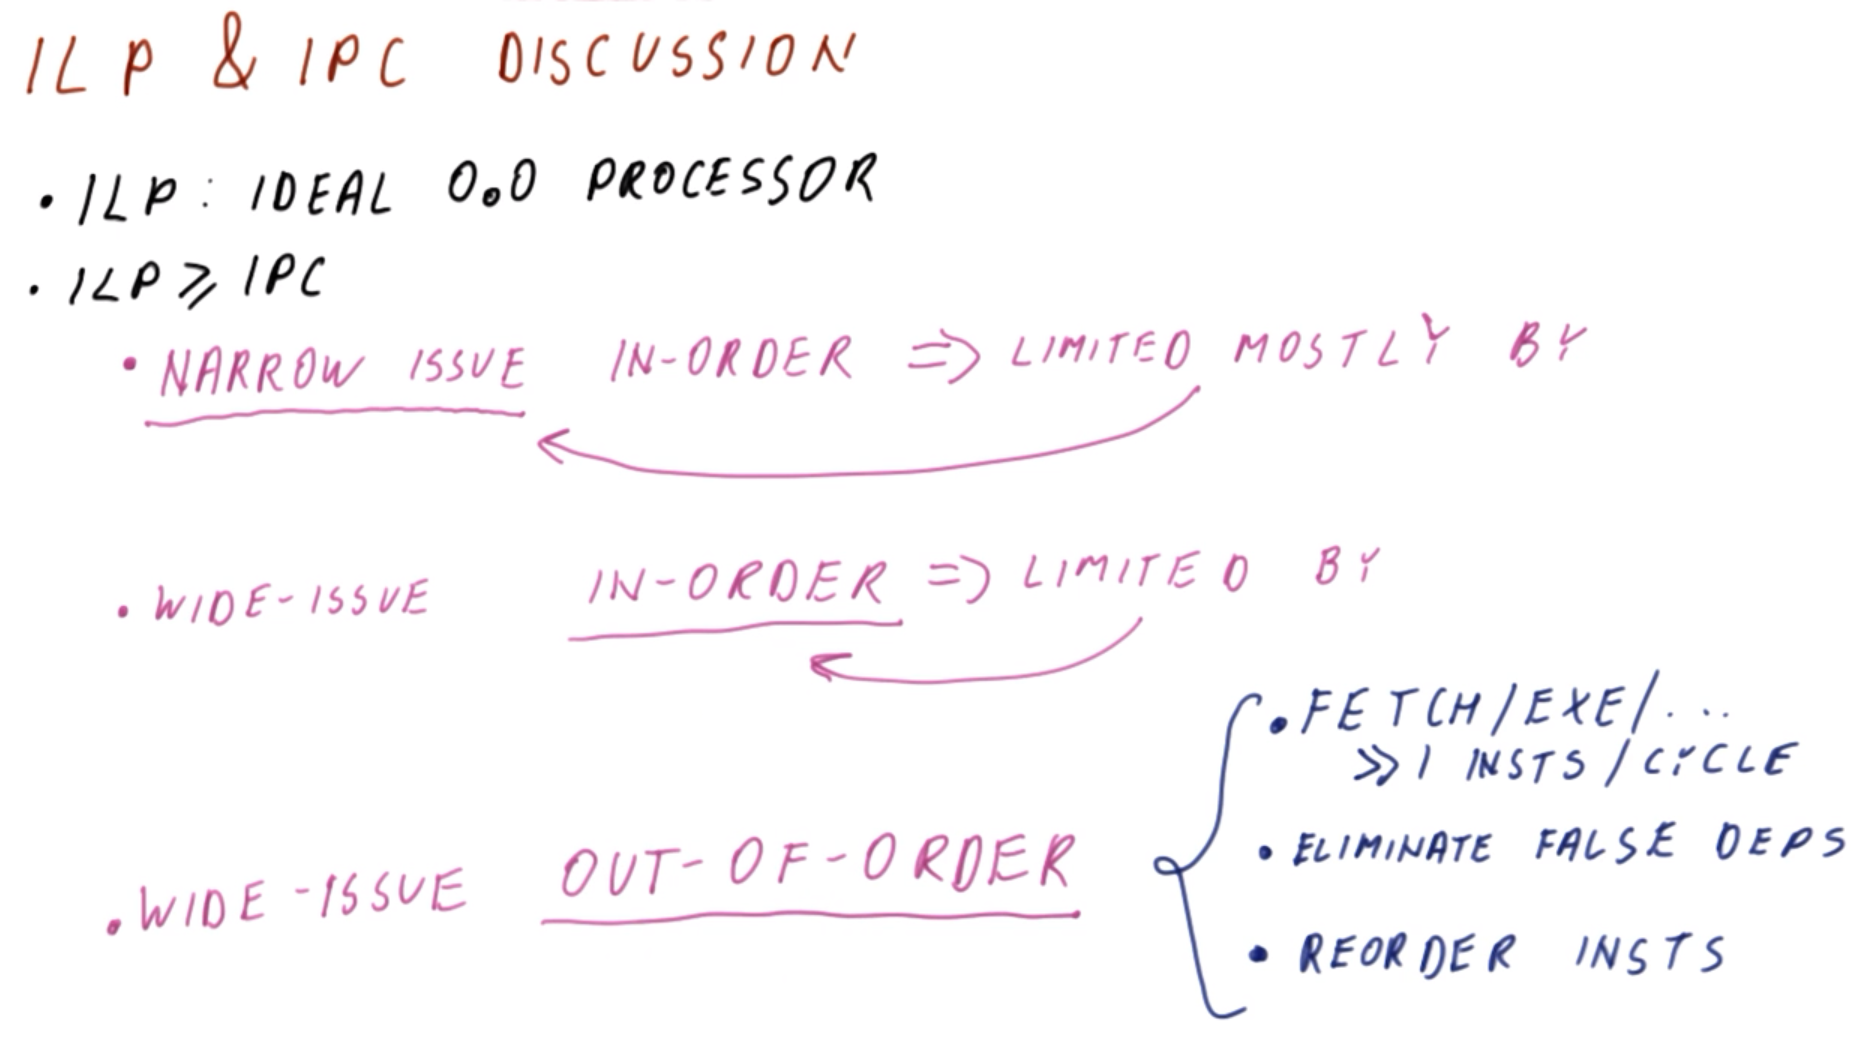 ILP & IPC DISCUSSION
• ILP: IDEAL O.O PROCESSOR
• ILP ≥ IPC
• NARROW ISSUE IN-ORDER => LIMITED MOSTLY BY
• WIDE-ISSUE IN-ORDER => LIMITED BY
• WIDE-ISSUE OUT-OF-ORDER
• FETCH/EXE/...
≫1 INSTS/CYCLE
• ELIMINATE FALSE DEPS
• REORDER INSTS